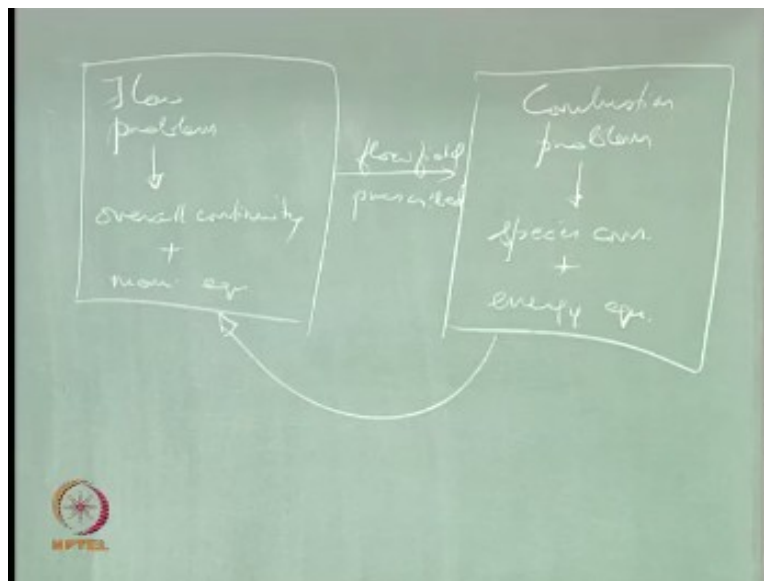 Flow
problem
overall continuity
+
mom. eq.
flow field
prescribed
Combustion
problem
species cons.
+
energy eqn.
NPTEL